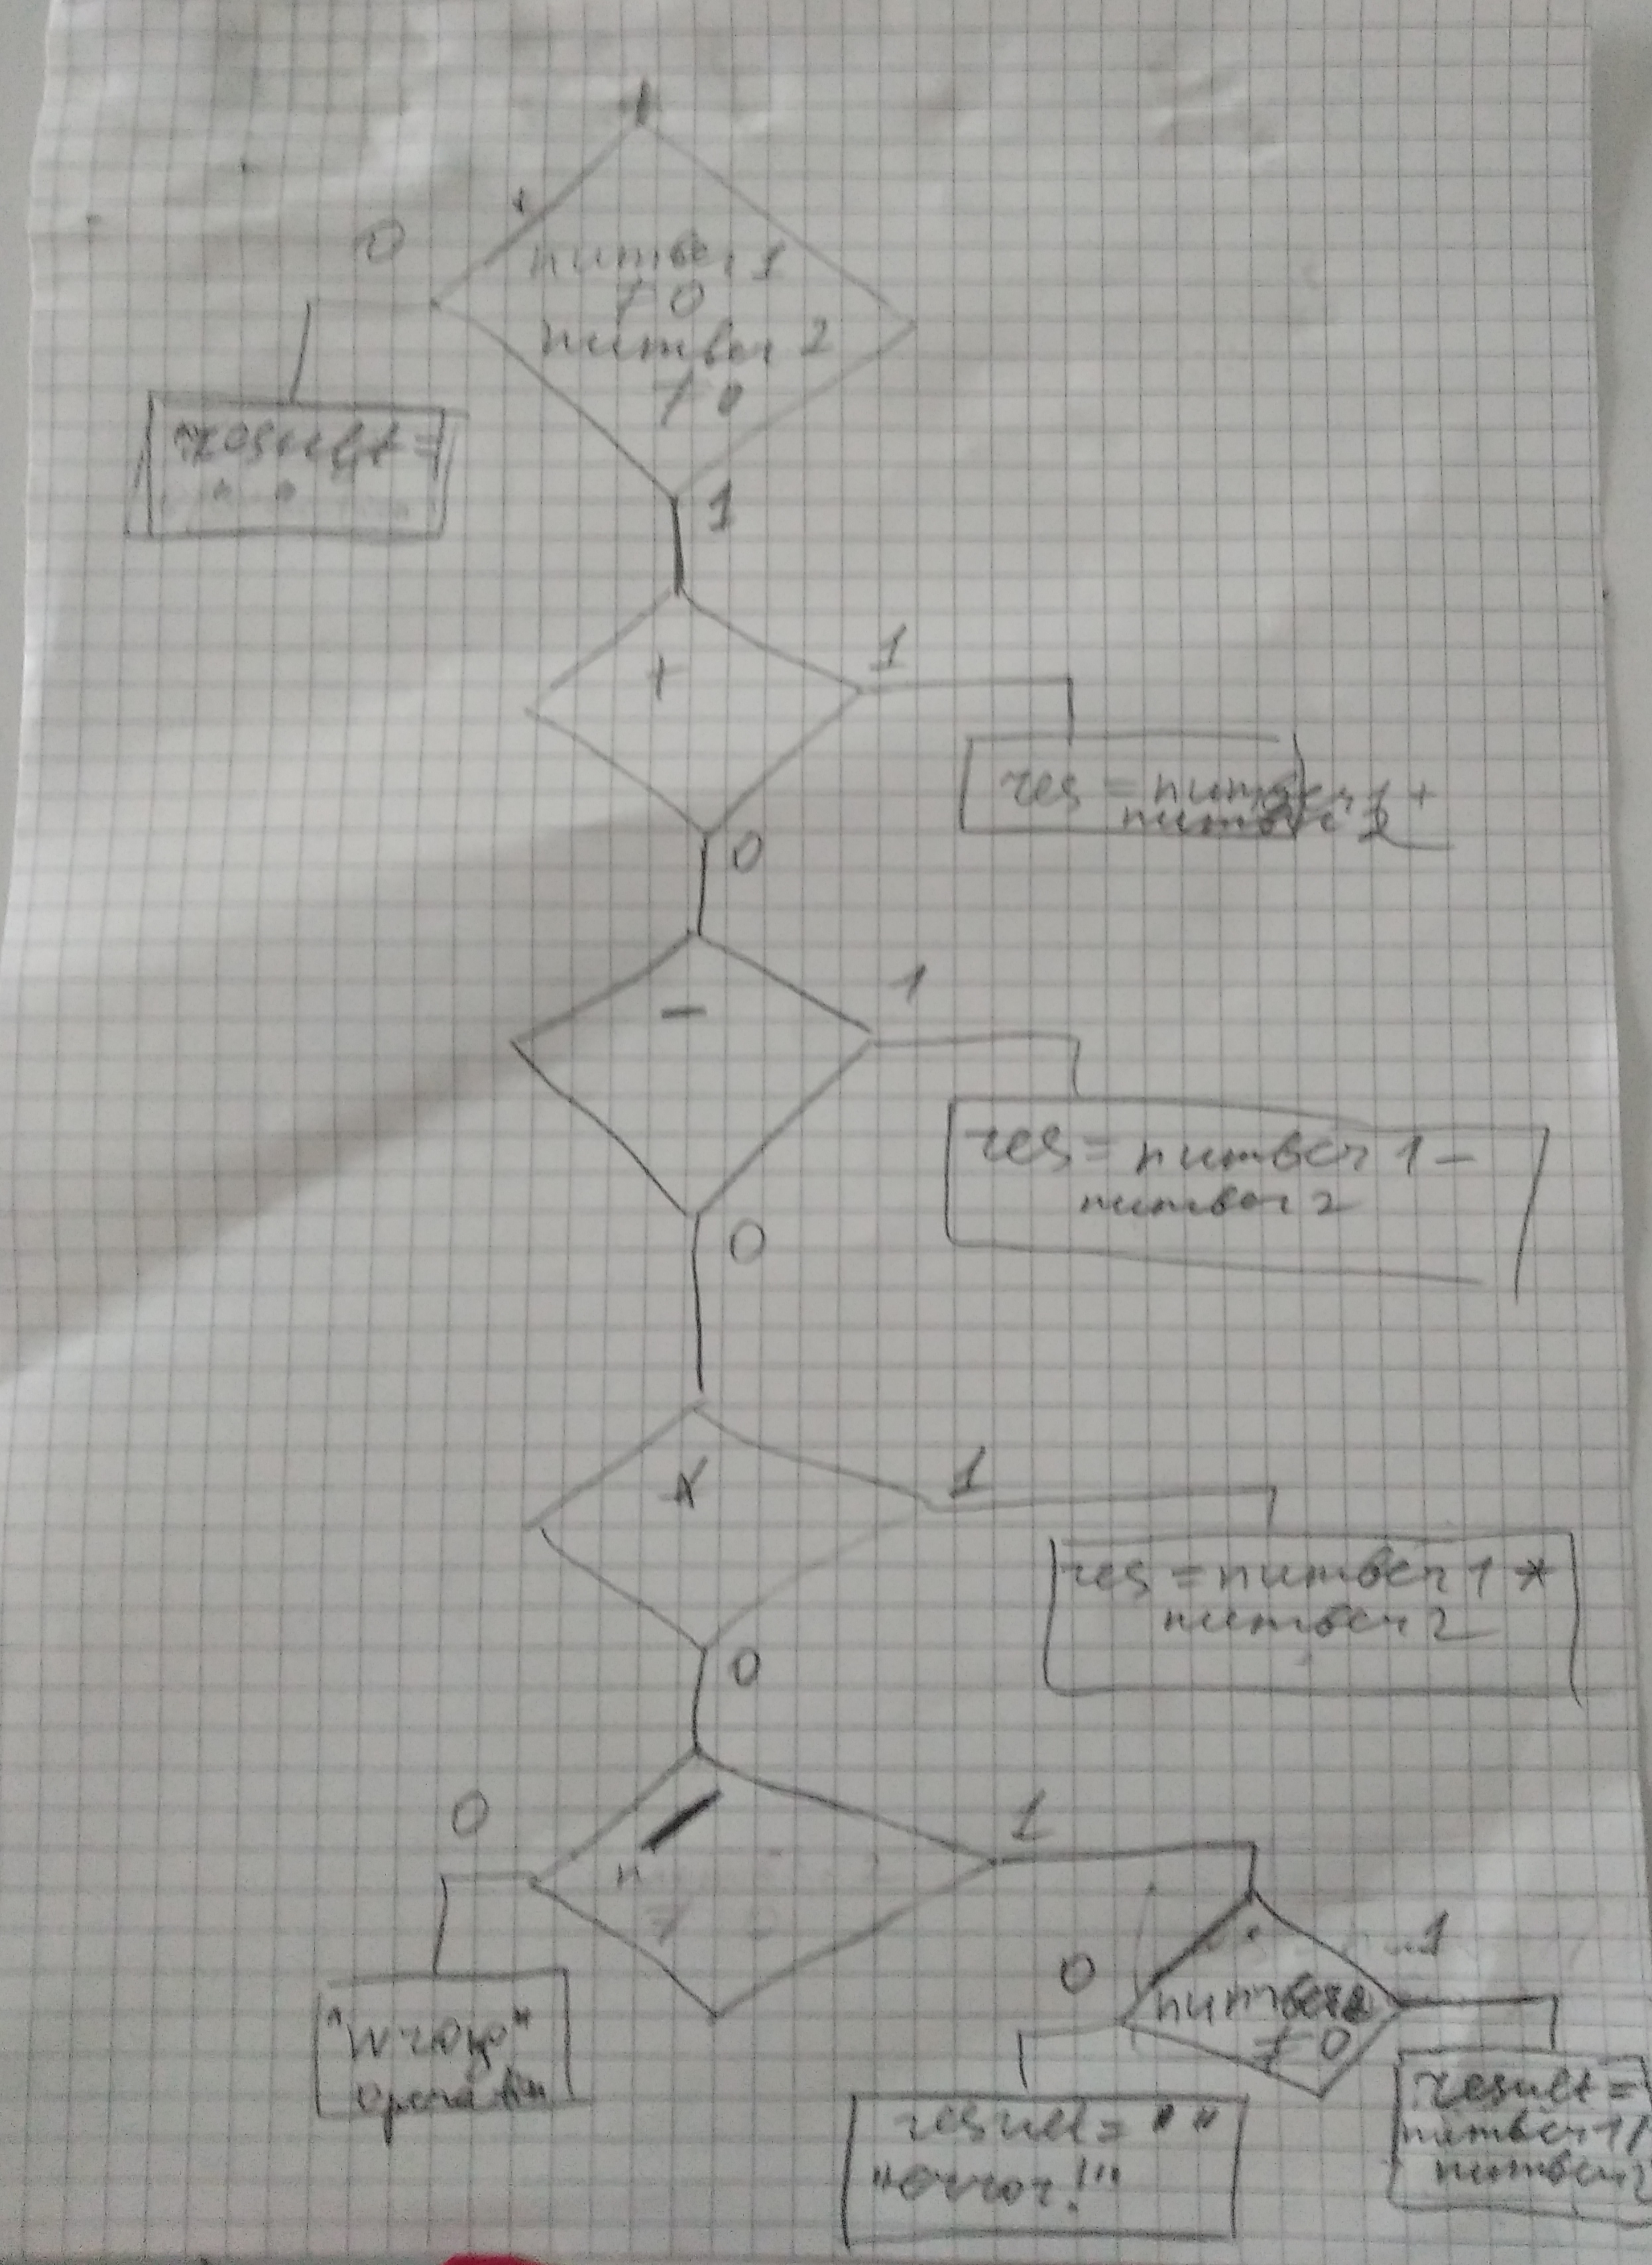 0
number 1
≠ 0
number 2
≠ 0
result =
" "
1
+
1
res = number 1 +
number 2
0
-
1
res = number 1 -
number 2
0
*
1
res = number 1 *
number 2
0
0
/
1
"wrong"
operation
0
number 2
≠ 0
1
result = " "
"error!"
result =
number 1 /
number 2